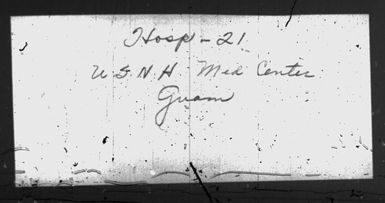 Hosp - 21
U S N H Med Center
Guam